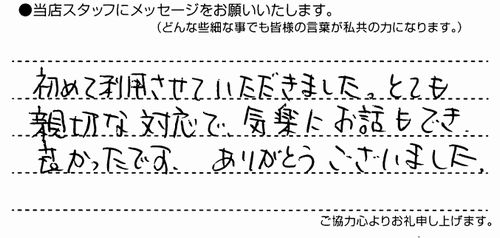 ●当店スタッフにメッセージをお願いいたします。
(どんな些細な事でも皆様の言葉が私共の力になります。)
初めて利用させていただきました。とても
親切な対応で、気楽にお話もでき
良かったです、ありがとうございました。
ご協力心よりお礼申し上げます。